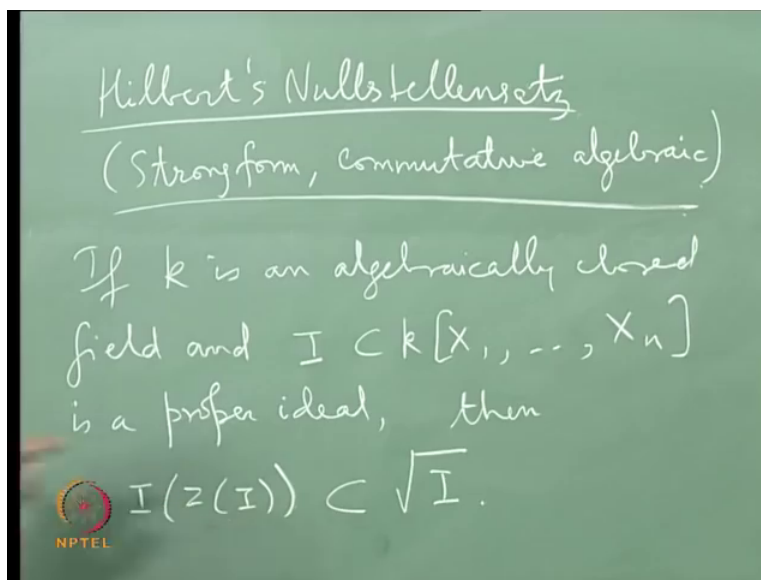 Hilbert's Nullstellensatz
(Strong form, commutative algebraic)
If k is an algebraically closed
field and I ⊂ k[X₁, --, Xₙ]
is a proper ideal, then
I(Z(I)) ⊂ √I.
NPTEL